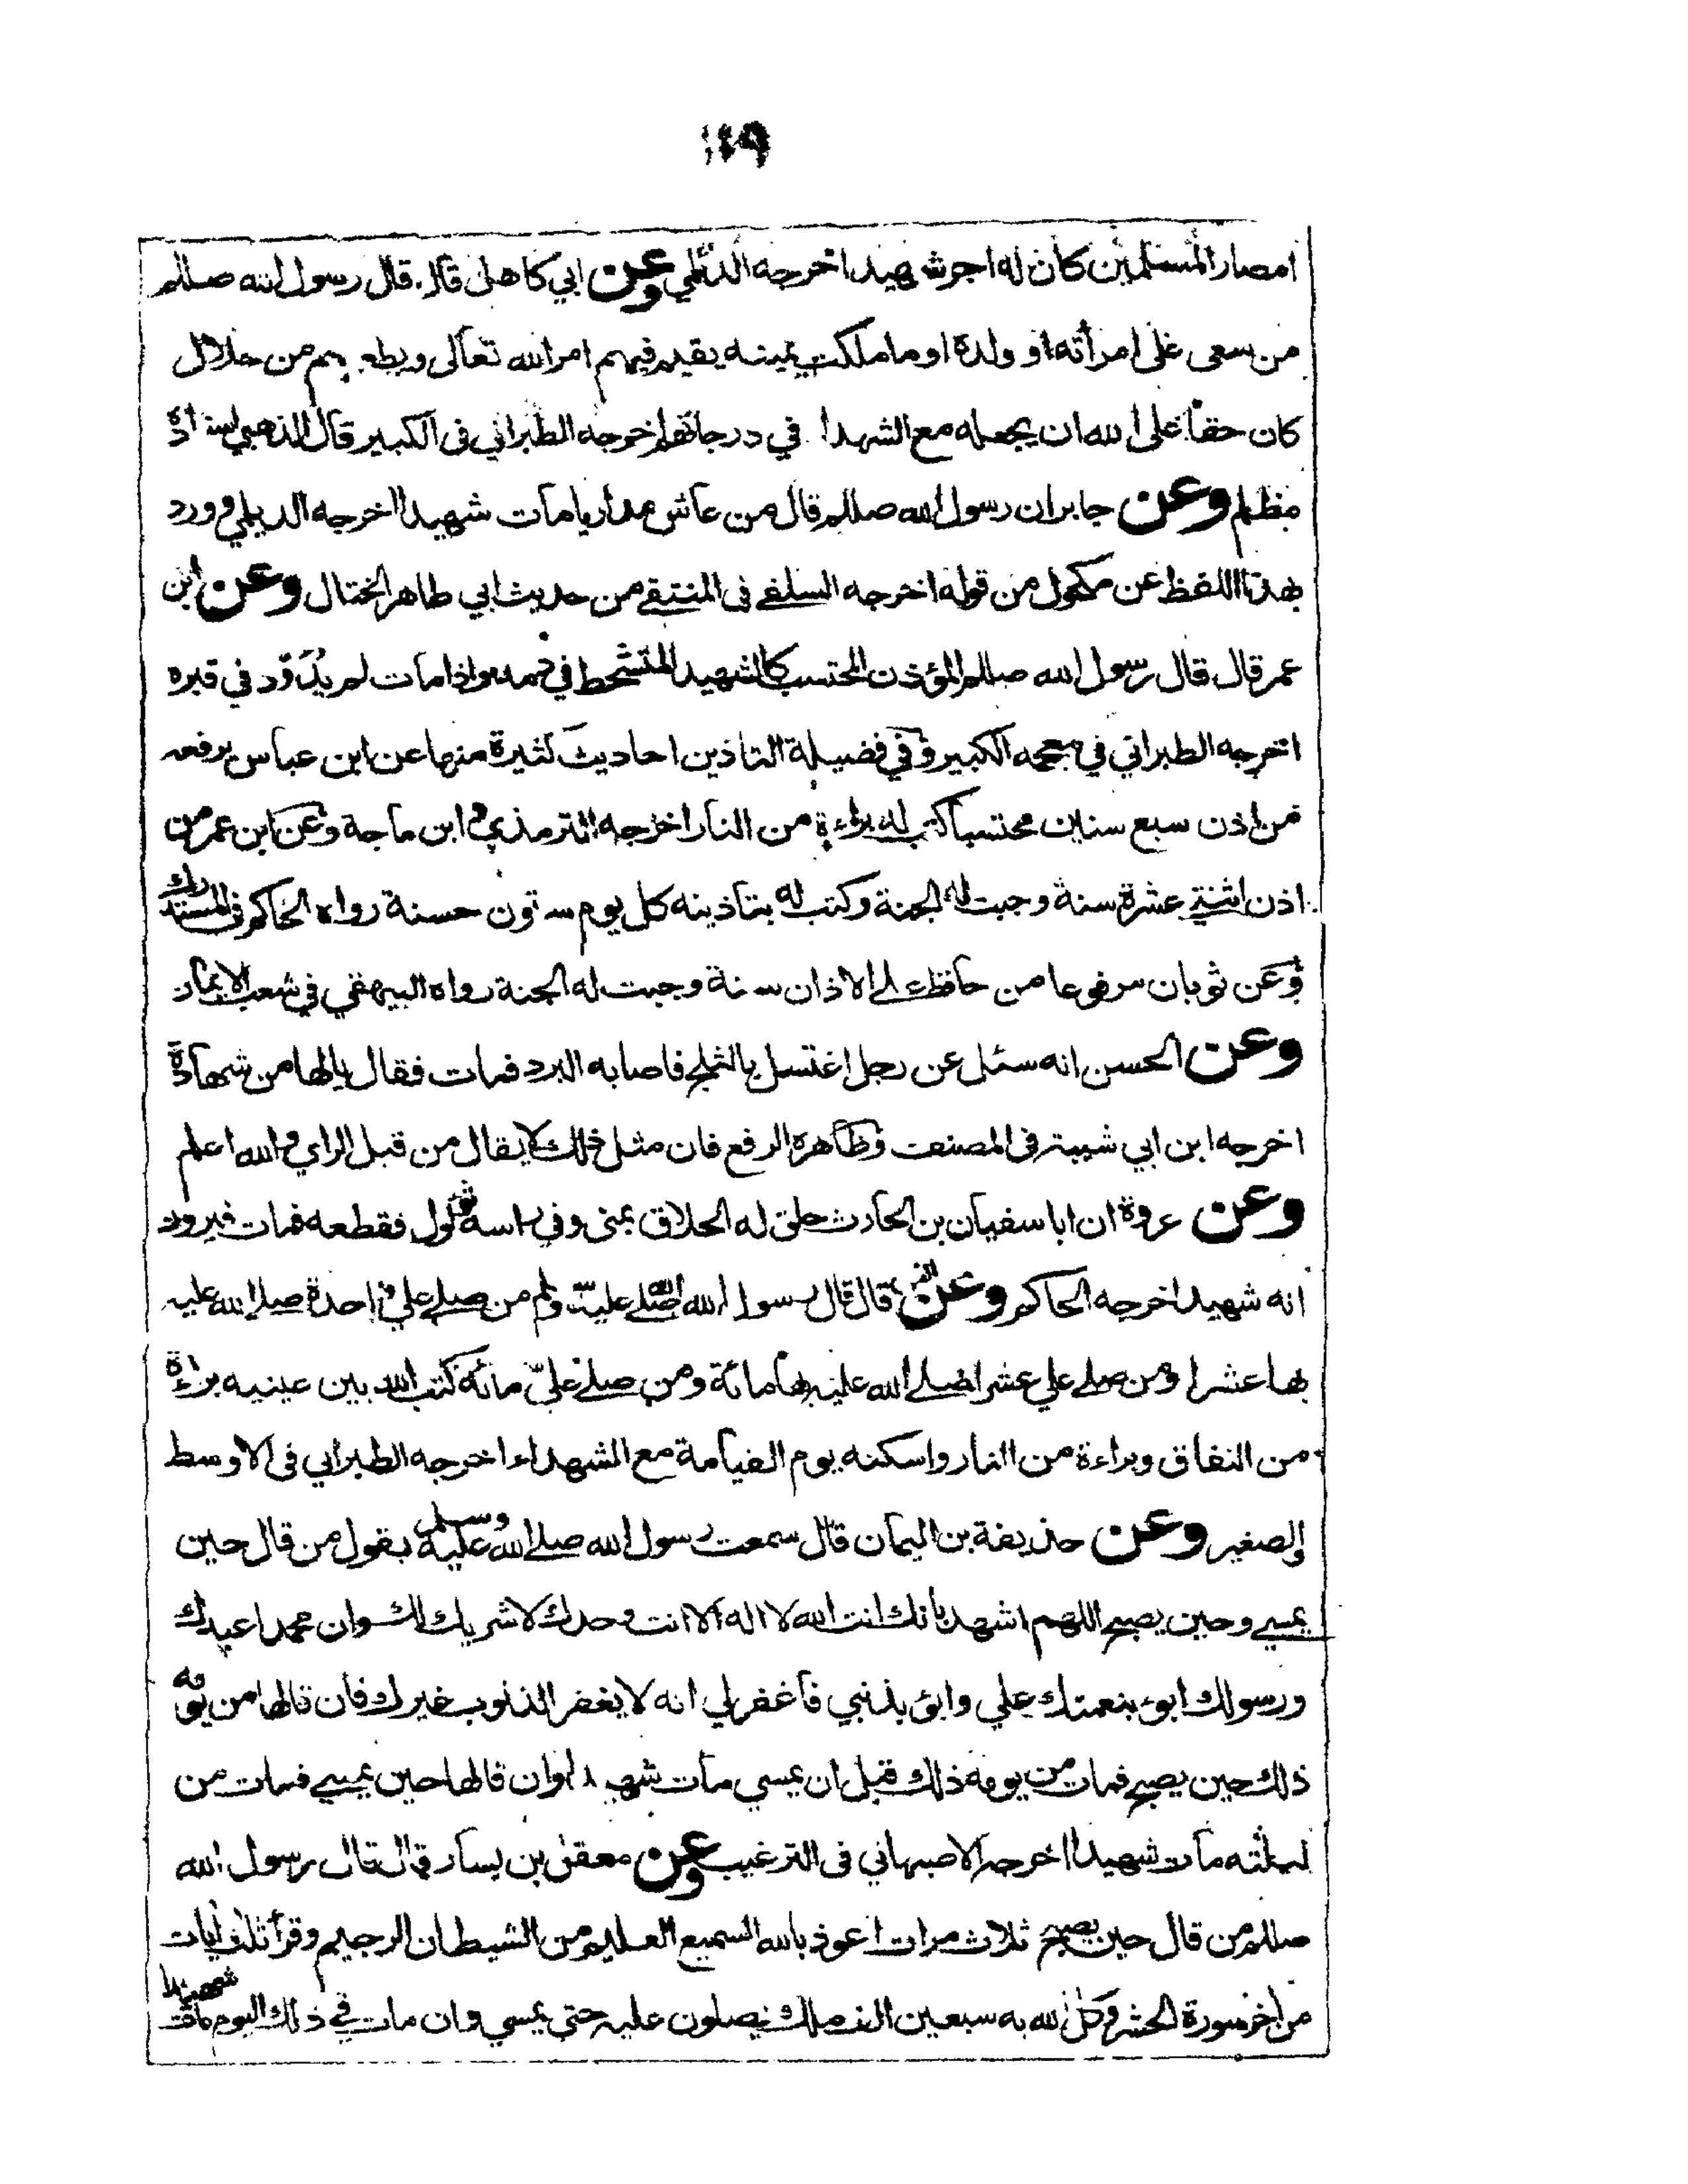 امصار المسلمين كان له اجر شهيد اخرجه الديلمي وعن ابي كاهل قال قال رسول الله صللم
من سعى على امرأته او ولدة او ما ملكت يمينه يقيم فيهم امر الله تعالى ويطعمهم من حلال
كان حقا على الله ان يجعله مع الشهدا في درجاتهم اخرجه الطبراني فى الكبير قال الذهبي اسنادة
مظلم وعن جابر ان رسول الله صللم قال من عاش مداريا مات شهيدا اخرجه الديلمي وورد
بهذا اللفظ عن مكحول من قوله اخرجه السلفے فى المنتقے من حديث ابي طاهر الختال وعن ابن
عمر قال قال رسول الله صللم المؤذن المحتسب كالشهيد المتشحط في دمه واذا مات لم يدود في قبره
اخرجه الطبراني في معجمه الكبير وفي فضيلة التاذين احاديث كثيرة منها عن ابن عباس يرفعه
من اذن سبع سنين محتسبا كتب له براءة من النار اخرجه الترمذي و ابن ماجة وعن ابن عمر من
اذن اثنتے عشرة سنة وجبت له الجنة وكتب له بتاذينه كل يوم ستون حسنة رواه الحاكم فى المستدرك
وعن ثوبان مرفوعا من حافظ علے الاذان سنة وجبت له الجنة رواه البيهقي في شعب الايمان
وعن الحسن انه سئل عن رجل اغتسل بالثلج فاصابه البرد فمات فقال يالها من شهادة
اخرجه ابن ابي شيبة فى المصنف وظاهرة الرفع فان مثل ذلك لا يقال من قبل الراي والله اعلم
وعن عروة ان ابا سفيان بن الحارث حلق له الحلاق بمنى وفي راسه ثؤلول فقطعه فمات فيرون
انه شهيد اخرجه الحاكم وعن انس قال قال رسول الله صلے الله عليه ولم من صلے علي واحدة صلے الله عليه
بها عشرا ومن صلے علي عشرا صلے الله عليه بها مائة ومن صلے علىّ مائة كتب الله بين عينيه براءة
من النفاق وبراءة من النار واسكنه يوم القيامة مع الشهداء اخرجه الطبراني فى الاوسط
والصغير وعن حذيفة بن اليمان قال سمعت رسول الله صلے الله عليه وسلم يقول من قال حين
يمسے وحين يصبح اللهم اشهد بانك انت الله لا اله الا انت وحدك لا شريك لك وان محمدا عبدك
ورسولك ابوء بنعمتك علي وابؤ بذنبي فاغفر لي انه لا يغفر الذنوب غيرك فان قالها من يومه
ذلك حين يصبح فمات من يومه ذلك قبل ان يمسي مات شهيدا وان قالها حين يمسے فمات من
ليلته مات شهيدا اخرجه الاصبهاني فى الترغيب وعن معقل بن يسار قال قال رسول الله
صللم من قال حين يصبح ثلاث مرات اعوذ بالله السميع العليم من الشيطان الرجيم وقرأ ثلث ايات
من اخر سورة الحشر وكل الله به سبعين الف ملك يصلون عليه حتى يمسي وان مات في ذلك اليوم مات شهيدا